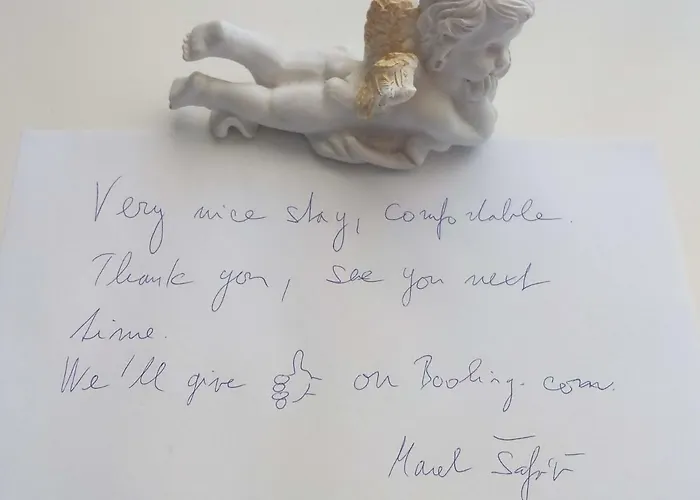 Very nice stay, comfortable.
Thank you, see you next
time.
We'll give 👍 on Booking.com.
Marek